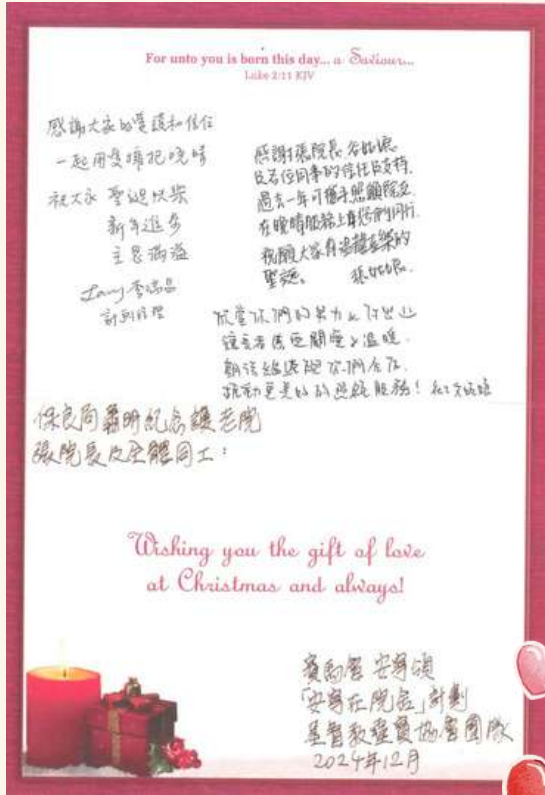 For unto you is born this day... a Saviour...
Luke 2:11 KJV
感謝大家的愛護和信任
一起用愛擁抱晚晴
祝大家 聖誕快樂
新年進步
主恩滿溢
計劃經理
感謝張院長、谷姑娘
及各位同事的信任及支持.
過去一年可攜手照顧院友
在晚晴服務上與您們同行.
祝願大家有溫馨喜樂的
聖誕。 張姑娘.
欣賞你們的努力及付出
讓長者感受關愛及溫暖.
期待繼續與你們合作.
推動更美好的照顧服務!
保良局蕭明紀念護老院
張院長及全體同工:
Wishing you the gift of love
at Christmas and always!
賽馬會 安寧頌
「安寧在院舍」計劃
基督教靈實協會團隊
2024年12月